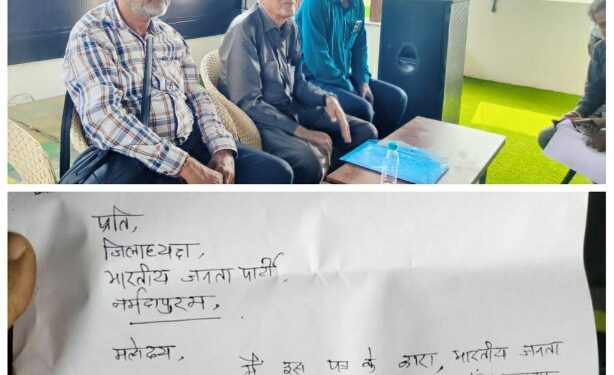 प्रति,
जिलाध्यक्ष,
भारतीय जनता पार्टी,
नर्मदापुरम,
महोदय,
मैं इस पत्र के द्वारा, भारतीय जनता